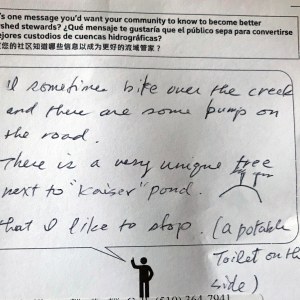 's one message you'd want your community to know to become better
shed stewards? ¿Qué mensaje te gustaría que el público sepa para convertirse
ejores custodios de cuencas hidrográficas?
您的社区知道哪些信息以成为更好的流域管家？
I sometimes bike over the creek
and there are some bump on
the road.
There is a very unique tree
next to "Kaiser" pond.
that I like to stop. (a potable
Toilet on the
side)